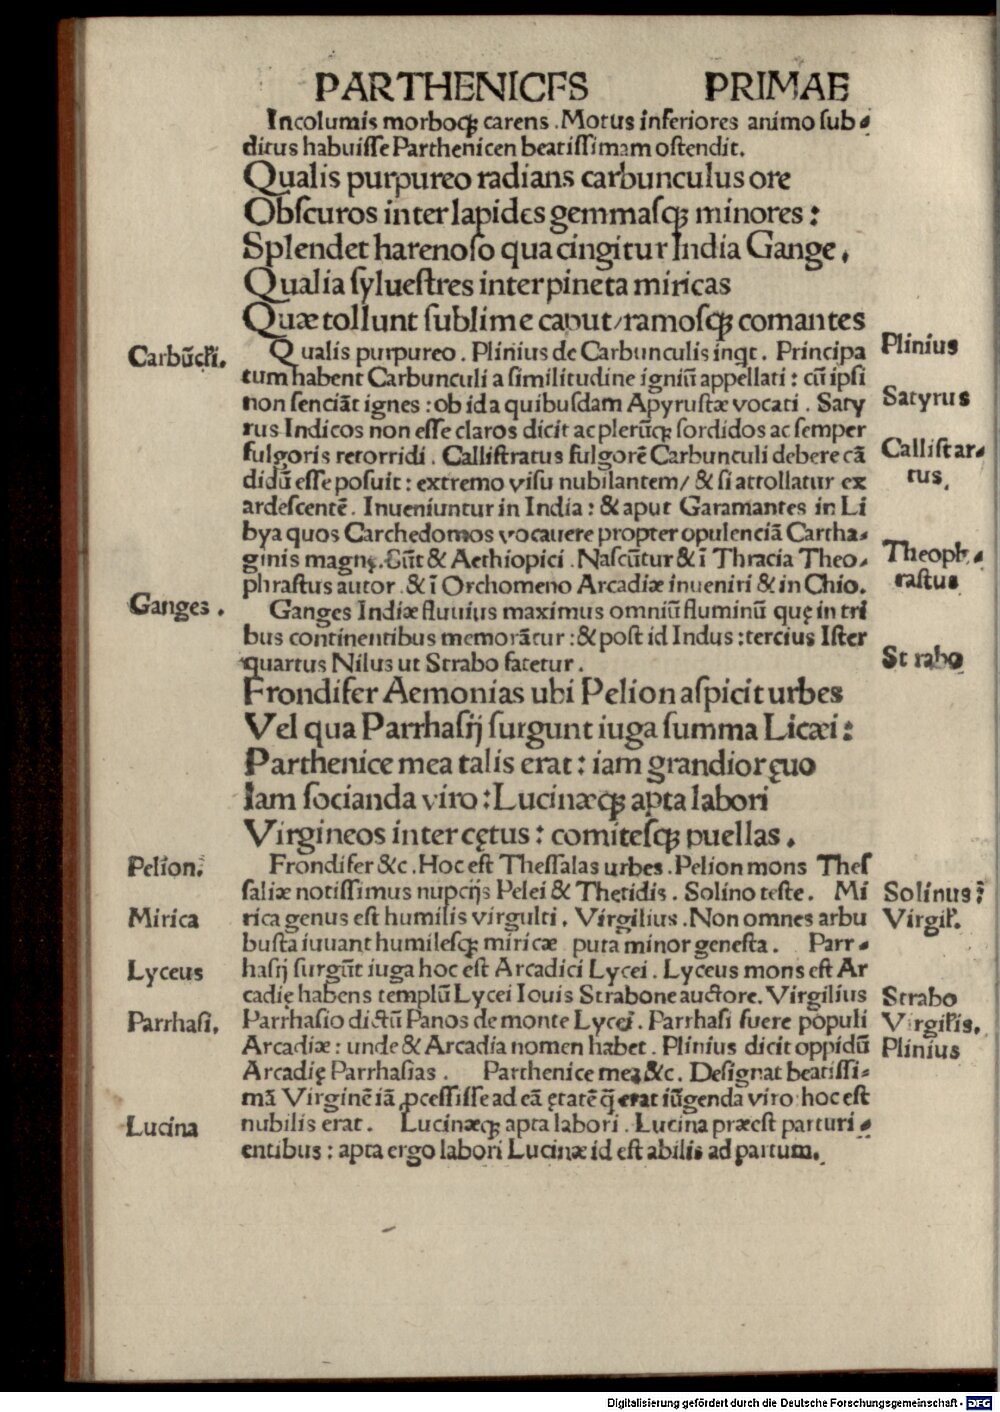 PARTHENICES PRIMAE
Incolumis morboqꝫ carens . Motus inferiores animo ſub⸗
ditus habuiſſe Parthenicen beatiſſimam oſtendit.
Qualis purpureo radians carbunculus ore
Obſcuros inter lapides gemmaſqꝫ minores :
Splendet harenoſo qua cingitur India Gange .
Qualia ſylueſtres inter pineta miricas
Quæ tollunt ſublime caput/ramoſqꝫ comantes
Carbūcĺi.
Qualis purpureo . Plinius de Carbunculis inqt . Principa
Plinius
tum habent Carbunculi a ſimilitudine igniū appellati : cū ipſi
non ſenciāt ignes : ob id a quibuſdam Apyruſtæ vocati . Saty
Satyrus
rus Indicos non eſſe claros dicit ac plerūqꝫ ſordidos ac ſemper
fulgoris retorridi . Calliſtratus fulgorē Carbunculi debere cā
Calliſtar⸗
tus.
didū eſſe poſuit : extremo viſu nubilantem/ & ſi attollatur ex
ardeſcentē . Inueniuntur in India : & aput Garamantes in Li
bya quos Carchedomos vocauere propter opulenciā Cartha⸗
ginis magnę. Sūt & Aethiopici . Naſcūtur & ī Thracia Theo⸗
Theoph⸗
raſtus
phraſtus autor . & ī Orchomeno Arcadiæ inueniri & in Chio.
Ganges .
Ganges Indiæ fluuius maximus omniū fluminū quę in tri
bus continentibus memorātur : & poſt id Indus : tercius Iſter
quartus Nilus ut Strabo fatetur .
Strabo
Frondifer Aemonias ubi Pelion aſpicit urbes
Vel qua Parrhaſij ſurgunt iuga ſumma Licæi :
Parthenice mea talis erat : iam grandior ęuo
Iam ſocianda viro : Lucinæqꝫ apta labori
Virgineos inter cętus : comiteſqꝫ puellas .
Pelion.
Frondifer &c . Hoc eſt Theſſalas urbes . Pelion mons Theſ
ſaliæ notiſſimus nupcijs Pelei & Thetidis . Solino teſte . Mi
Solinus
Mirica
rica genus eſt humilis virgulti . Virgilius . Non omnes arbu
Virgiĺ.
buſta iuuant humileſqꝫ miricæ puta minor geneſta . Parr⸗
Lyceus
haſij ſurgūt iuga hoc eſt Arcadici Lycei . Lyceus mons eſt Ar
cadię habens templū Lycei Iouis Strabone auctore. Virgilius
Strabo
Parrhaſi.
Parrhaſio dictū Panos de monte Lycei . Parrhaſi fuere populi
Virgiĺis.
Arcadiæ : unde & Arcadia nomen habet . Plinius dicit oppidū
Plinius
Arcadię Parrhaſias . Parthenice mea &c . Deſignat beatiſſi⸗
mā Virginē iā ꝓceſſiſſe ad eā ętatē q̄ erat iūgenda viro hoc eſt
Lucina
nubilis erat . Lucinæqꝫ apta labori . Lucina præeſt parturi⸗
entibus : apta ergo labori Lucinæ id eſt abilis ad partum.
Digitalisierung gefördert durch die Deutsche Forschungsgemeinschaft - DFG